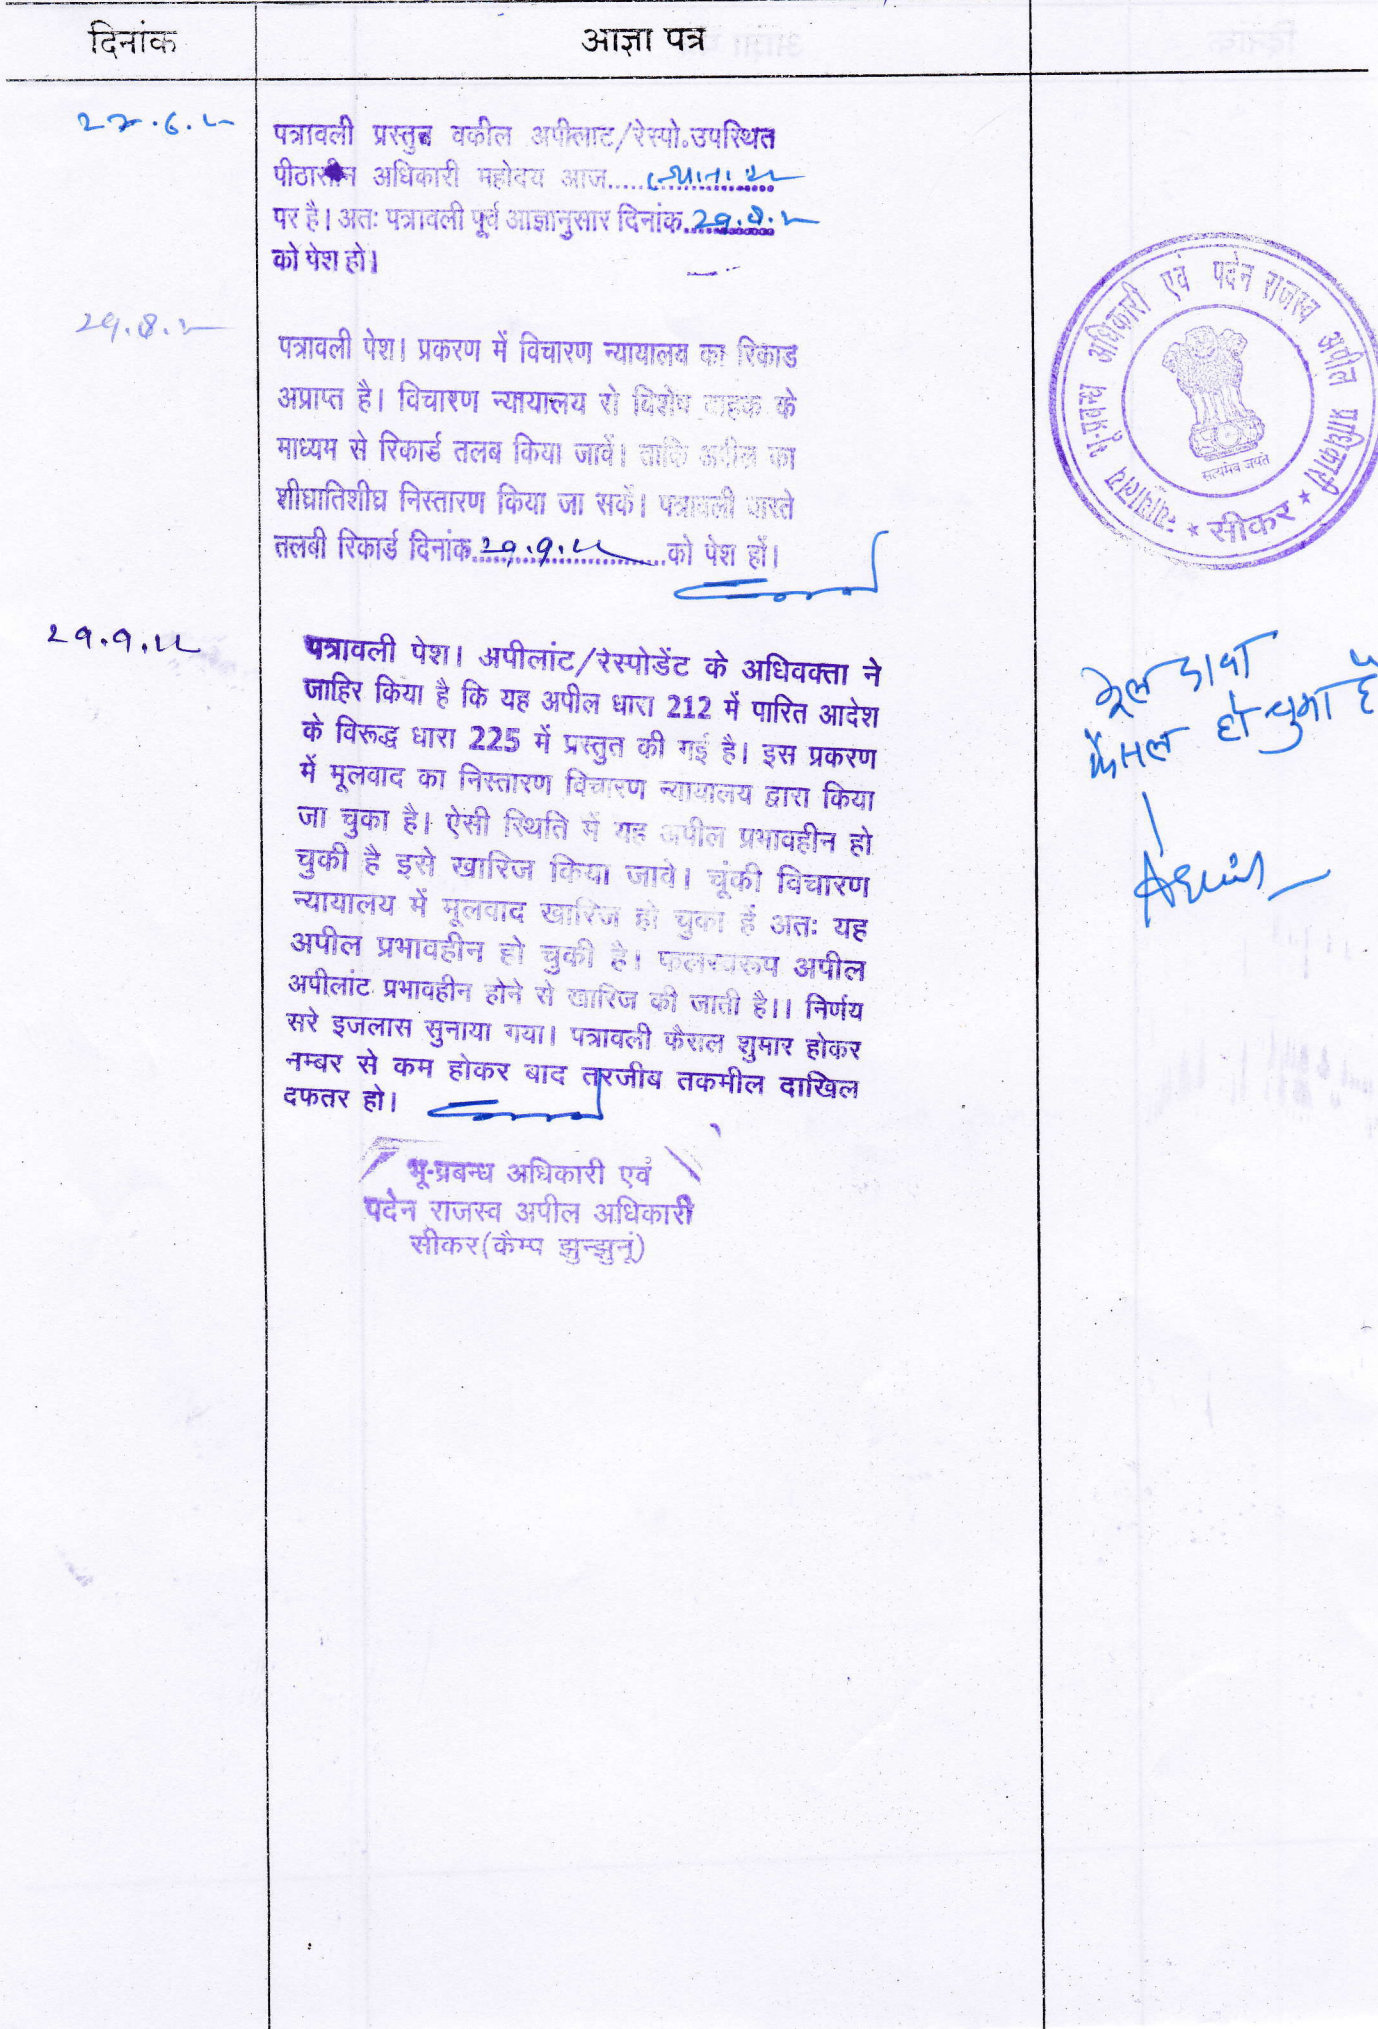 दिनांक
आज्ञा पत्र
पत्रावली प्रस्तुत वकील अपीलाट/रेस्पो.उपस्थित
पीठासीन अधिकारी महोदय आज......
पर है। अतः पत्रावली पूर्व आज्ञानुसार दिनांक
को पेश हो।
पत्रावली पेश। प्रकरण में विचारण न्यायालय का रिकाड
अप्राप्त है। विचारण न्यायालय से विशेष वाहक के
माध्यम से रिकार्ड तलब किया जावें। ताकि अपील का
शीघ्रातिशीघ्र निस्तारण किया जा सकें। पत्रावली वास्ते
तलबी रिकार्ड दिनांक 29.9.22 को पेश हों।
29.9.22
पत्रावली पेश। अपीलांट/रेस्पोडेंट के अधिवक्ता ने
जाहिर किया है कि यह अपील धारा 212 में पारित आदेश
के विरूद्ध धारा 225 में प्रस्तुत की गई है। इस प्रकरण
में मूलवाद का निस्तारण विचारण न्यायालय द्वारा किया
जा चुका है। ऐसी स्थिति में यह अपील प्रभावहीन हो
चुकी है इसे खारिज किया जावे। चूंकी विचारण
न्यायालय में मूलवाद खारिज हो चुका हैं अतः यह
अपील प्रभावहीन हो चुकी है। फलस्वरूप अपील
अपीलांट प्रभावहीन होने से खारिज की जाती है।। निर्णय
सरे इजलास सुनाया गया। पत्रावली फैसल शुमार होकर
नम्बर से कम होकर बाद तरजीब तकमील दाखिल
दफतर हो।
भू-प्रबन्ध अधिकारी एवं
पदेन राजस्व अपील अधिकारी
सीकर(कैम्प झुन्झुनूं)
न्यायालय भू-प्रबन्ध अधिकारी एवं पदेन राजस्व अपील प्राधिकारी
सत्यमेव जयते
★ सीकर ★
मूल दावा
फैसल हो चुका है